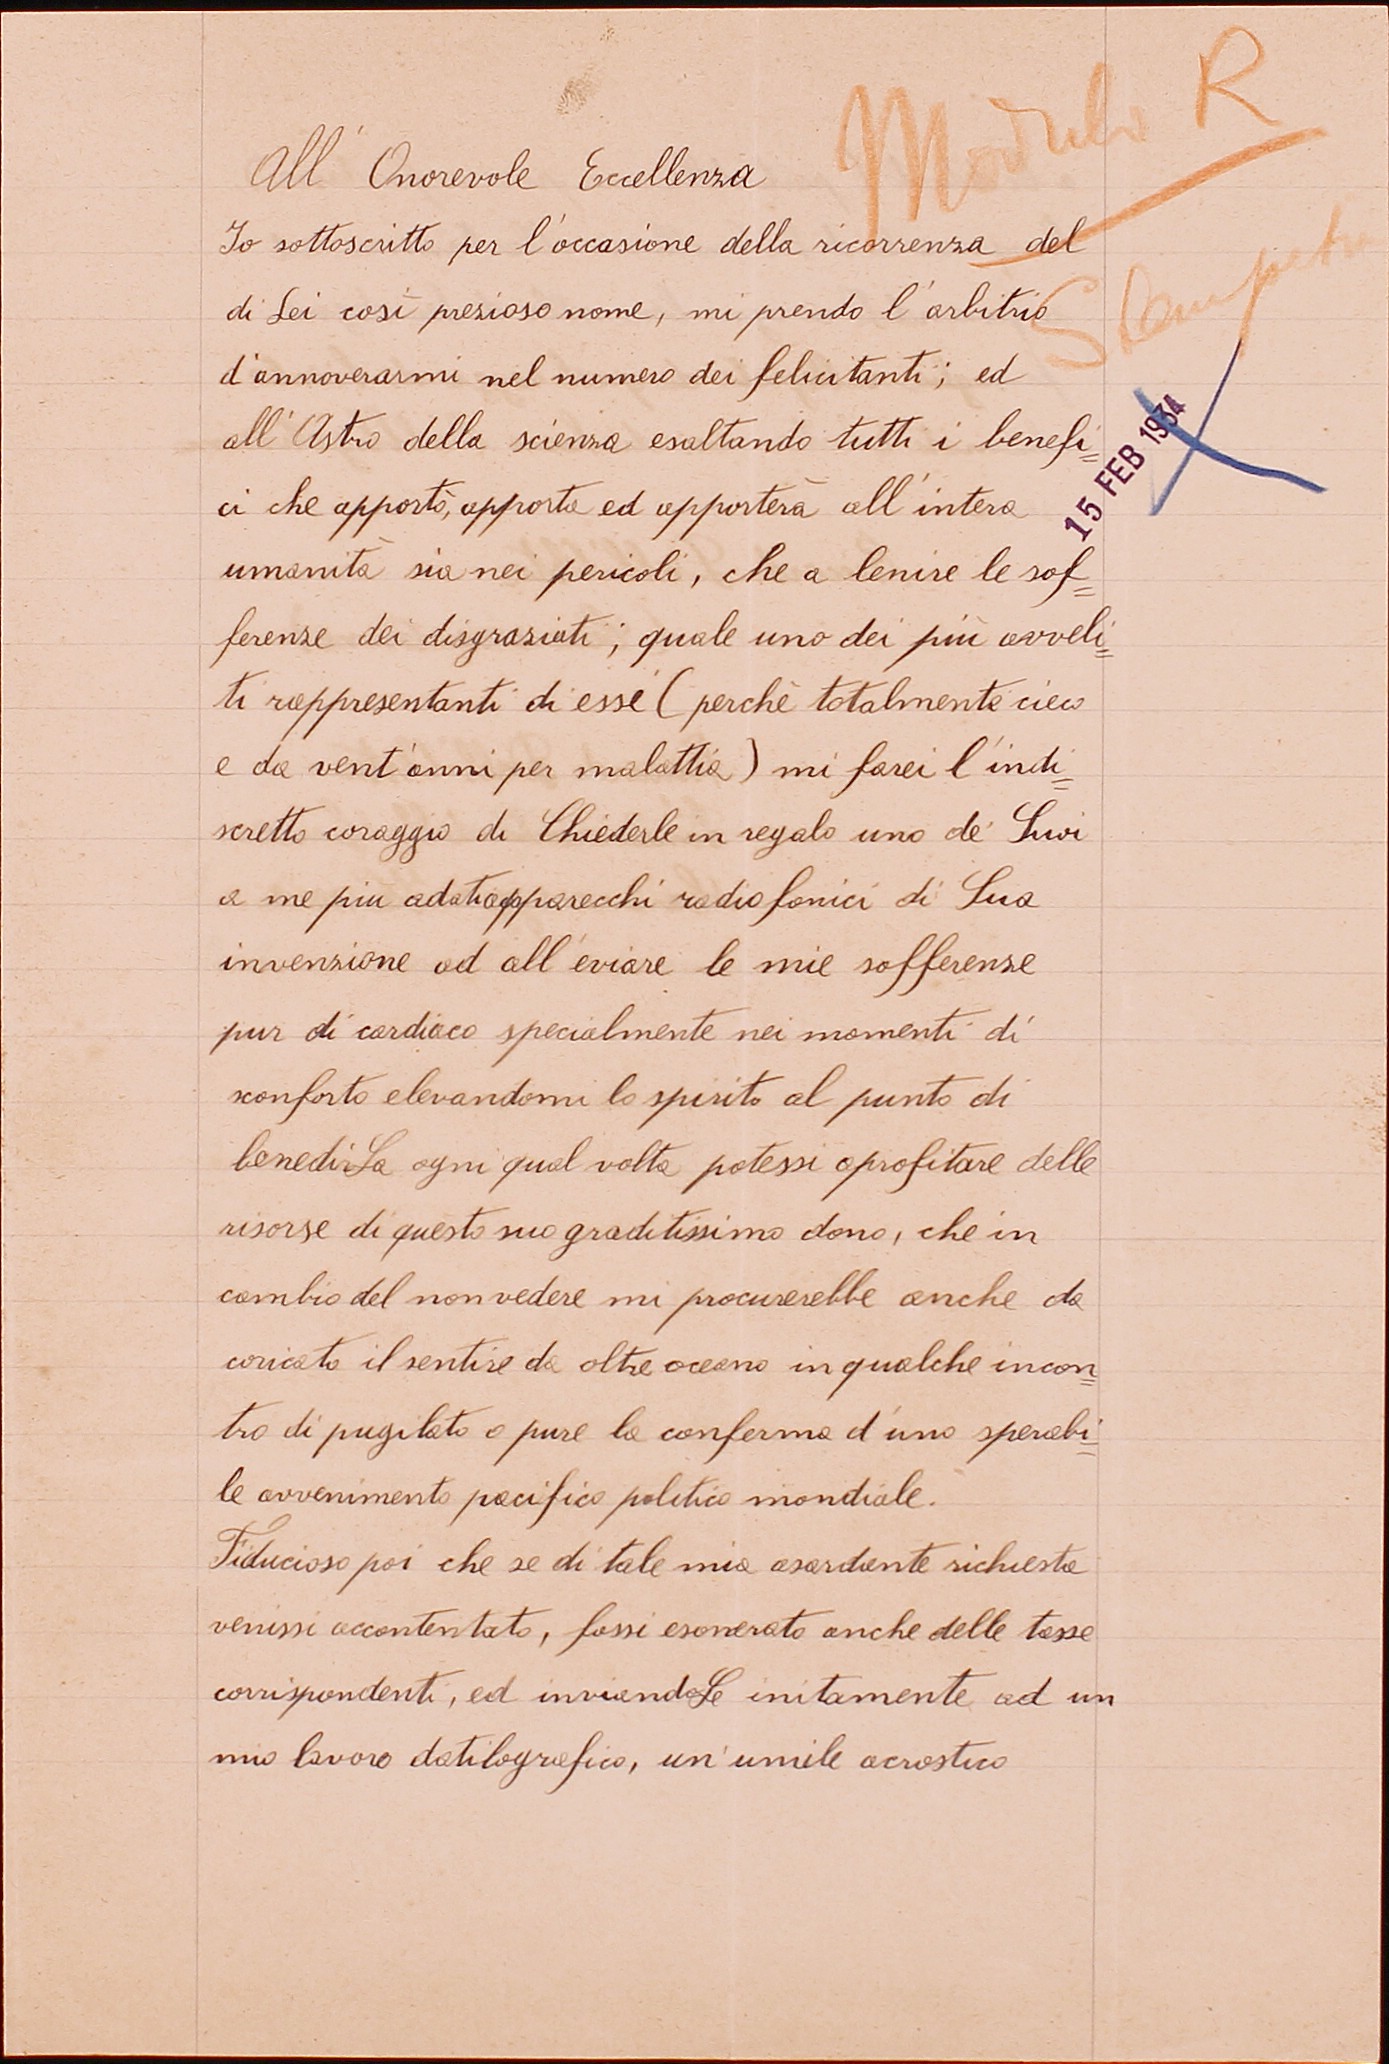 Modulo R
All' Onorevole Eccellenza
Io sottoscritto per l'occasione della ricorrenza del
di Lei così prezioso nome, mi prendo l'arbitrio
d'annoverarmi nel numero dei felicitanti; ed
all'Astro della scienza esaltando tutti i benefi=
15 FEB 1934
ci che apportò, apporta ed apporterà all'intera
umanità sia nei pericoli, che a lenire le sof=
ferenze dei disgraziati; quale uno dei più avveli=
ti rappresentanti di essi (perchè totalmente cieco
e da vent'anni per malattia) mi farei l'indi=
scretto coraggio di Chiederle in regalo uno de' Suoi
a me piu adati apparecchi radiofonici di Sua
invenzione ad all'eviare le mie sofferenze
pur di cardiaco specialmente nei momenti di
sconforto elevandomi lo spirito al punto di
benedirLa ogni qual volta potessi aprofitare delle
risorse di questo suo graditissimo dono, che in
cambio del non vedere mi procurerebbe anche da
coricato il sentire da oltre oceano in qualche incon=
tro di pugilato o pure la conferma d'uno sperabi=
le avvenimento pacifico politico mondiale.
Fiducioso poi che se di tale mia asardante richiesta
venissi accontentato, fossi esonerato anche delle tasse
corrispondenti, ed inviandoLe initamente ad un
mio lavoro datilografico, un'umile acrostico